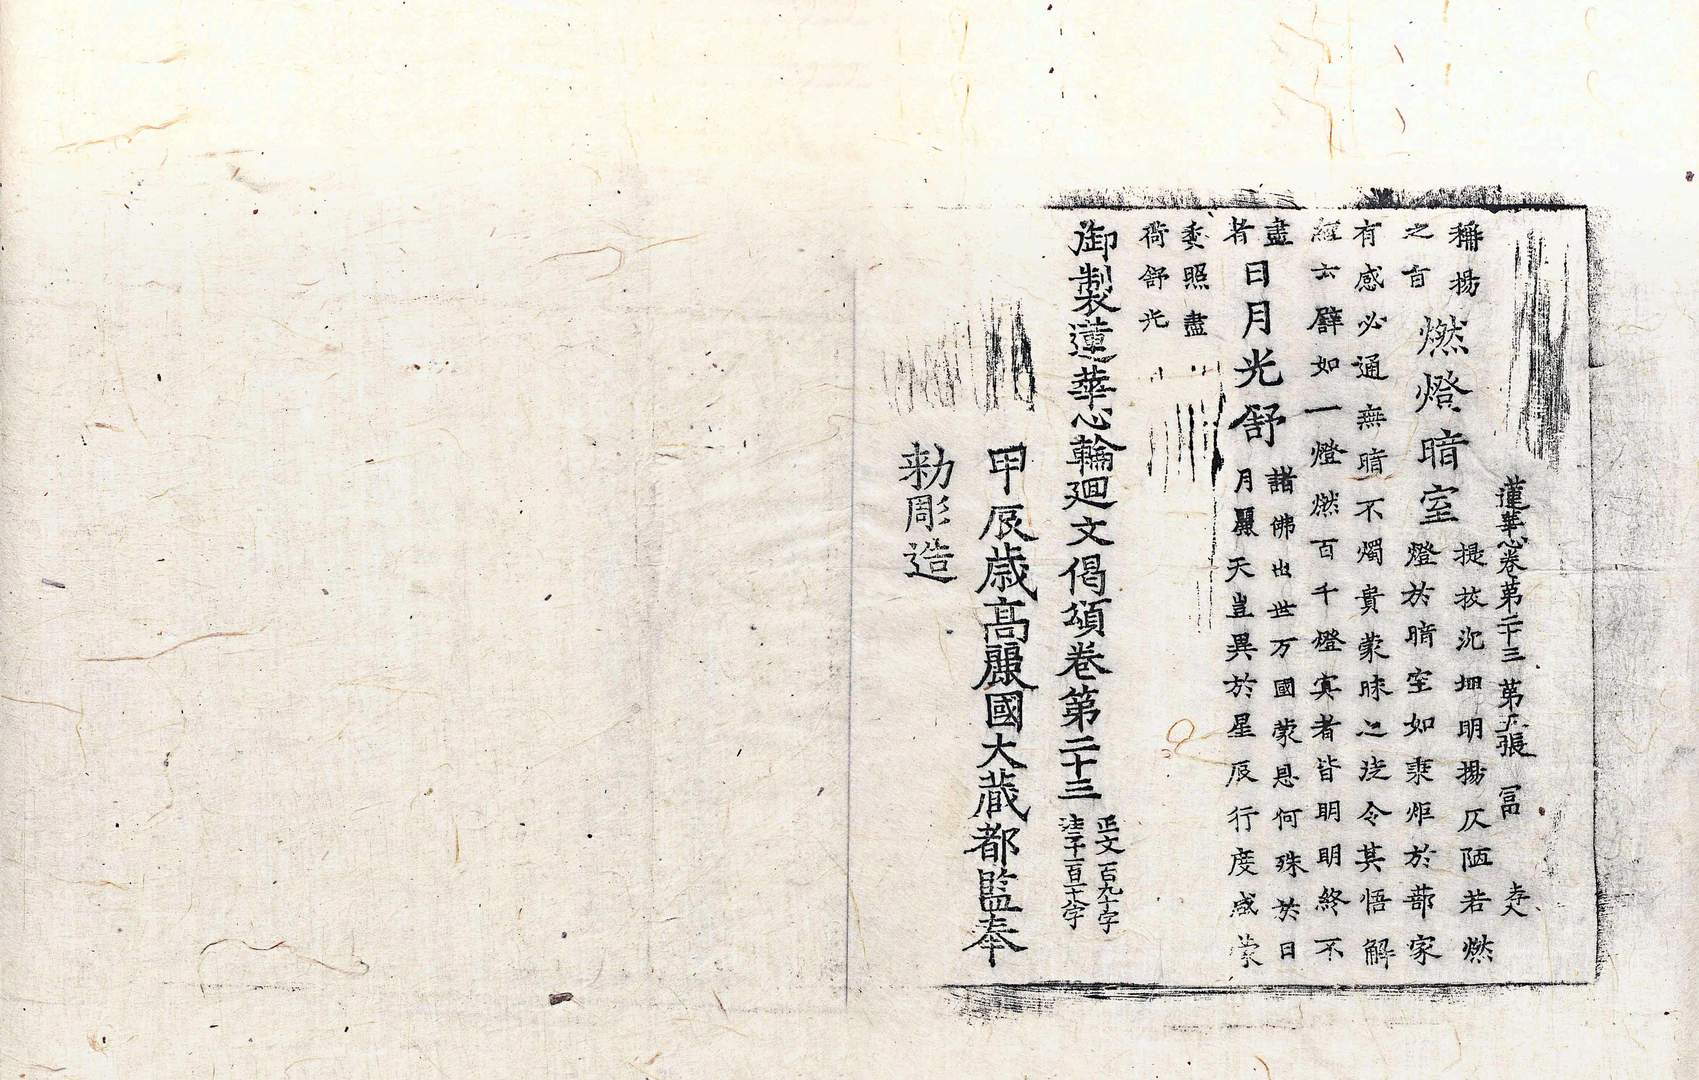 蓮華心卷第二十三 第五張 冨
稱揚
之盲
燃燈暗室
提拔沉 明揚仄陋若燃
燈於暗室如秉炬於蔀家
有感必通無暗不燭貴蒙昧之流令其悟解
經云譬如一燈燃百千燈冥者皆明明終不
盡
者
日月光舒
諸佛出世万國蒙恩何殊於日
月麗天豈異於星辰行度咸蒙
委照盡
舒光
御製蓮華心輪廻文偈頌卷第二十三
正文一百九十字
注二千一百十八字
甲辰歲高麗國大藏都監奉
勑彫造